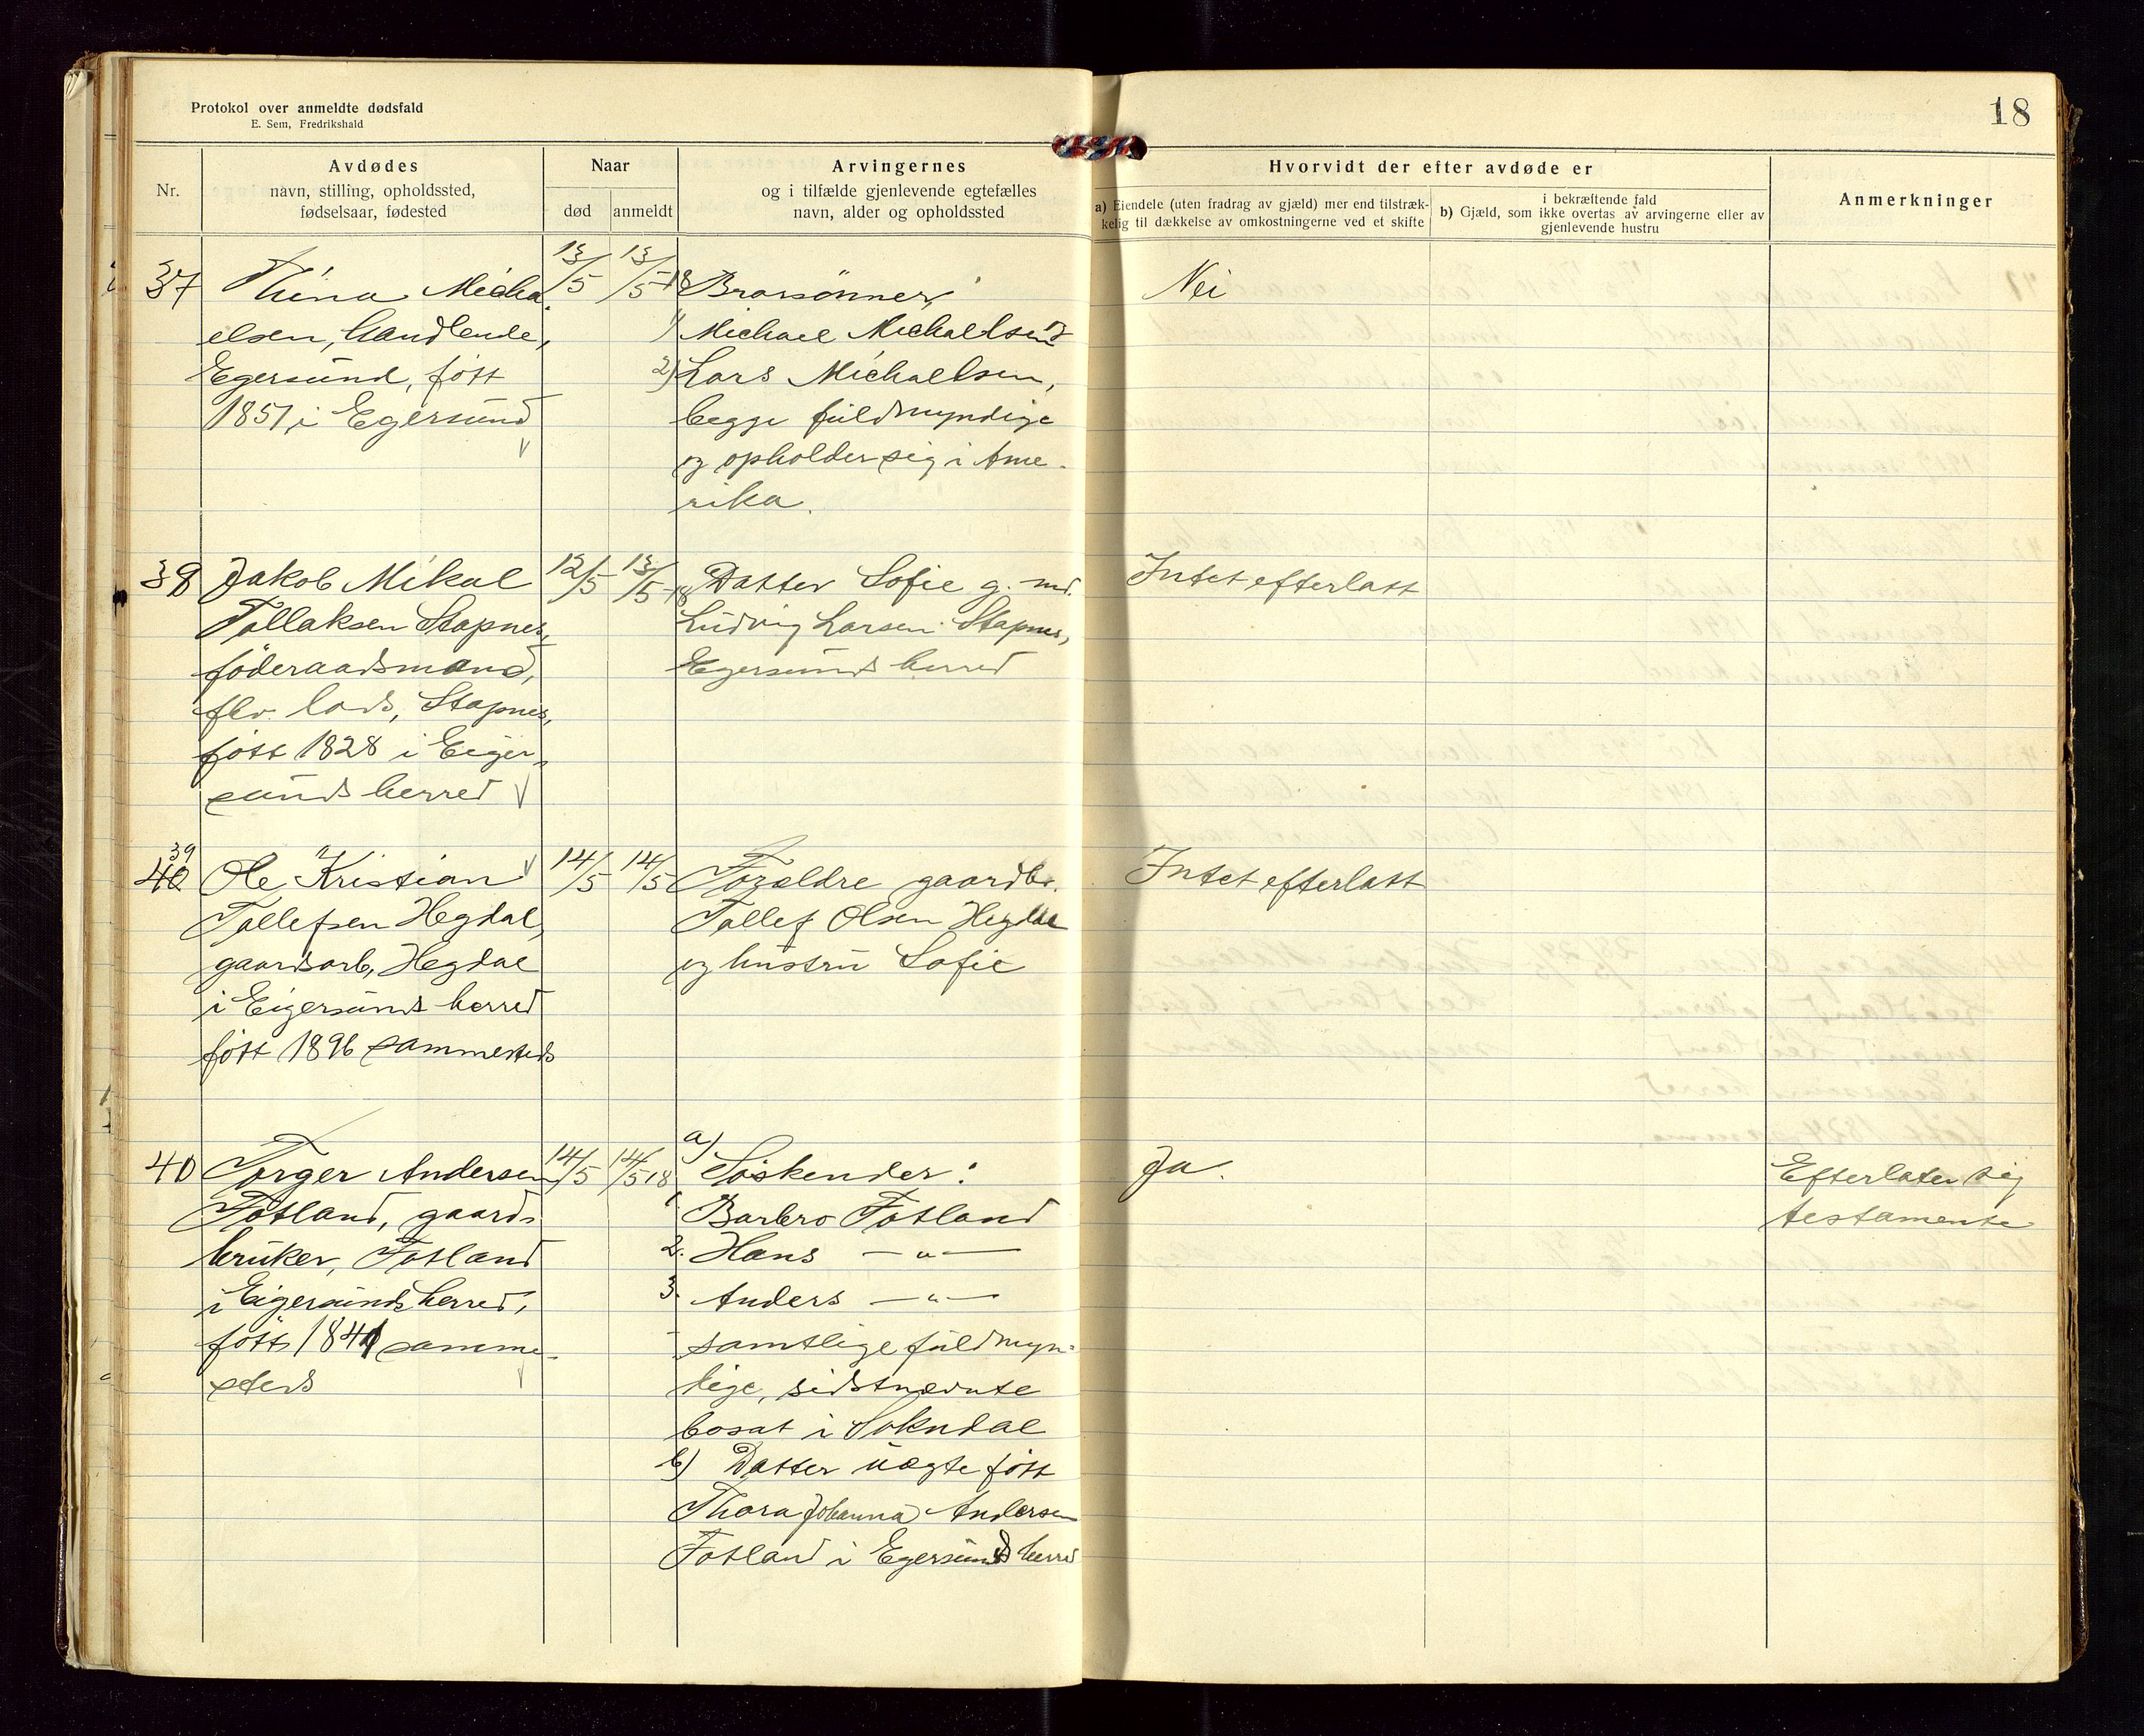 Protokol over anmeldte dødsfald
E. Sem, Fredrikshald
18
Nr.
Avdødes
navn, stilling, opholdssted,
fødselsaar, fødested
Naar
død
anmeldt
Arvingernes
og i tilfælde gjenlevende egtefælles
navn, alder og opholdssted
Hvorvidt der efter avdøde er
a) Eiendele (uten fradrag av gjæld) mer end tilstræk-
kelig til dækkelse av omkostningerne ved et skifte
i bekræftende fald
b) Gjæld, som ikke overtas av arvingerne eller av
gjenlevende hustru
Anmerkninger
37 Thina Micha
elsen, handlende,
Egersund, født
1851, i Egersund
13/5 13/5 18
Brorsønner,
1) Michael Michaelsen
2) Lars Michaelsen,
begge fuldmyndige
og opholder sig i Ame-
rika.
Nei
38 Jakob Mikal
Tollaksen Stapnes,
føderaadsmand,
flv. lods, Stapnes,
født 1828 i Eiger-
sunds herred
12/5 13/5 18
Datter Sofie g. m.
Ludvig Larsen Stapnes,
Egersunds herred
Intet efterlatt
39
40 Ole Kristian
Tollefsen Hegdal,
gaardsarb, Hegdal
i Eigersunds herred
født 1896 sammesteds
14/5 14/5
Forældre gaardbr.
Tollef Olsen Hegdal
og hustru Sofie
Intet efterlatt
40 Torger Andersen
Fotland, gaard-
bruker, Fotland
i Eigersunds herred,
født 1841 samme-
steds
14/5 14/5 18
a)
Søskender:
1 Barbro Fotland
2. Hans — " —
3. Anders — " —
samtlige fuldmyn-
dige, sidstnævnte
bosat i Sokndal
b) Datter uægte født
Thora Johanna Andersen
Fotland i Egersunds herred
Ja.
Efterlater sig
testamente